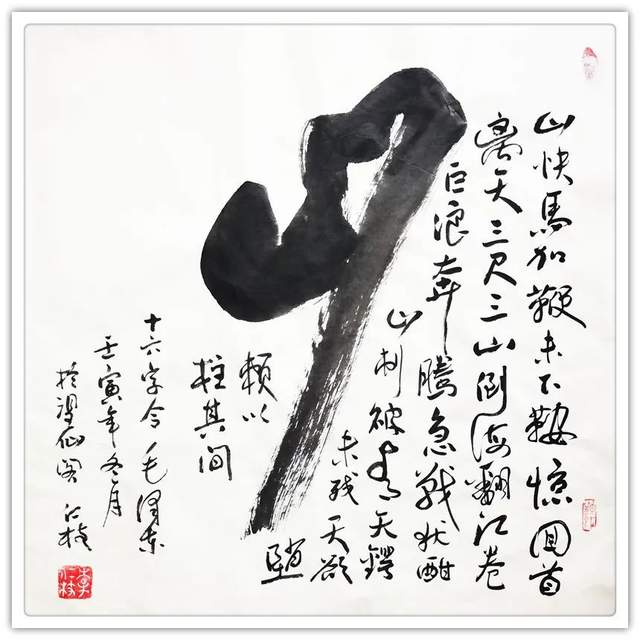 山
山快馬加鞭未下鞍惊回首
离天三尺三山倒海翻江卷
巨浪奔騰急戰犹酣
山刺破青天鍔
未残天欲
堕
賴以
拄其间
十六字令毛泽东
壬寅年冬月
於仙阁仁枝